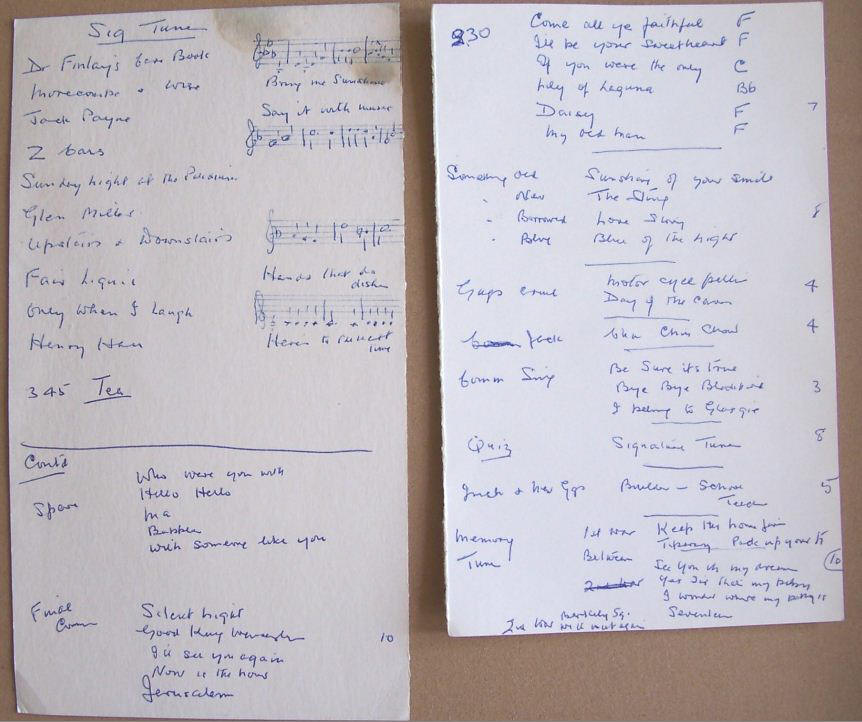 Sig Tune
Dr Finlay's Case Book
Morecombe & Wise
Bring me Sunshine
Jack Payne
Say it with music
2 bars
Sunday Night at the
Glen Miller
Upstairs & Downstairs
Fairy Liquid
Hands that do
dishes
Only When I Laugh
Henry Hall
Here's to
time
345 Tea
Contd
Who were you with
Spare
Hello Hello
Ma
Bubbles
With someone like you
Final
Comm
Silent Night
Good King Wenceslas
10
I'll see you again
Now is the hour
Jerusalem
230
Come all ye faithful F
I'll be your Sweetheart F
If you were the only C
Lily of Laguna Bb
Daisy F 7
My old man F
Something old Sunshine of your smile
" New The Sting
" Borrowed Love Story 8
" Blue Blue of the Night
motor cycle 4
Day
Jack Chu Chin Chow 4
Comm Sing Be Sure its True
Bye Bye Blackbird 3
I belong to Glasgie
Quiz Signature Tunes 8
Builder - School 5
Teach
Memory 1st war Keep the home fires
Tune Tipperary Pack up your
Between See you in my dreams 10
2nd war Yes Sir that my baby
I wonder where my baby is
Berkeley Sq. Seventeen
2nd war We'll meet again